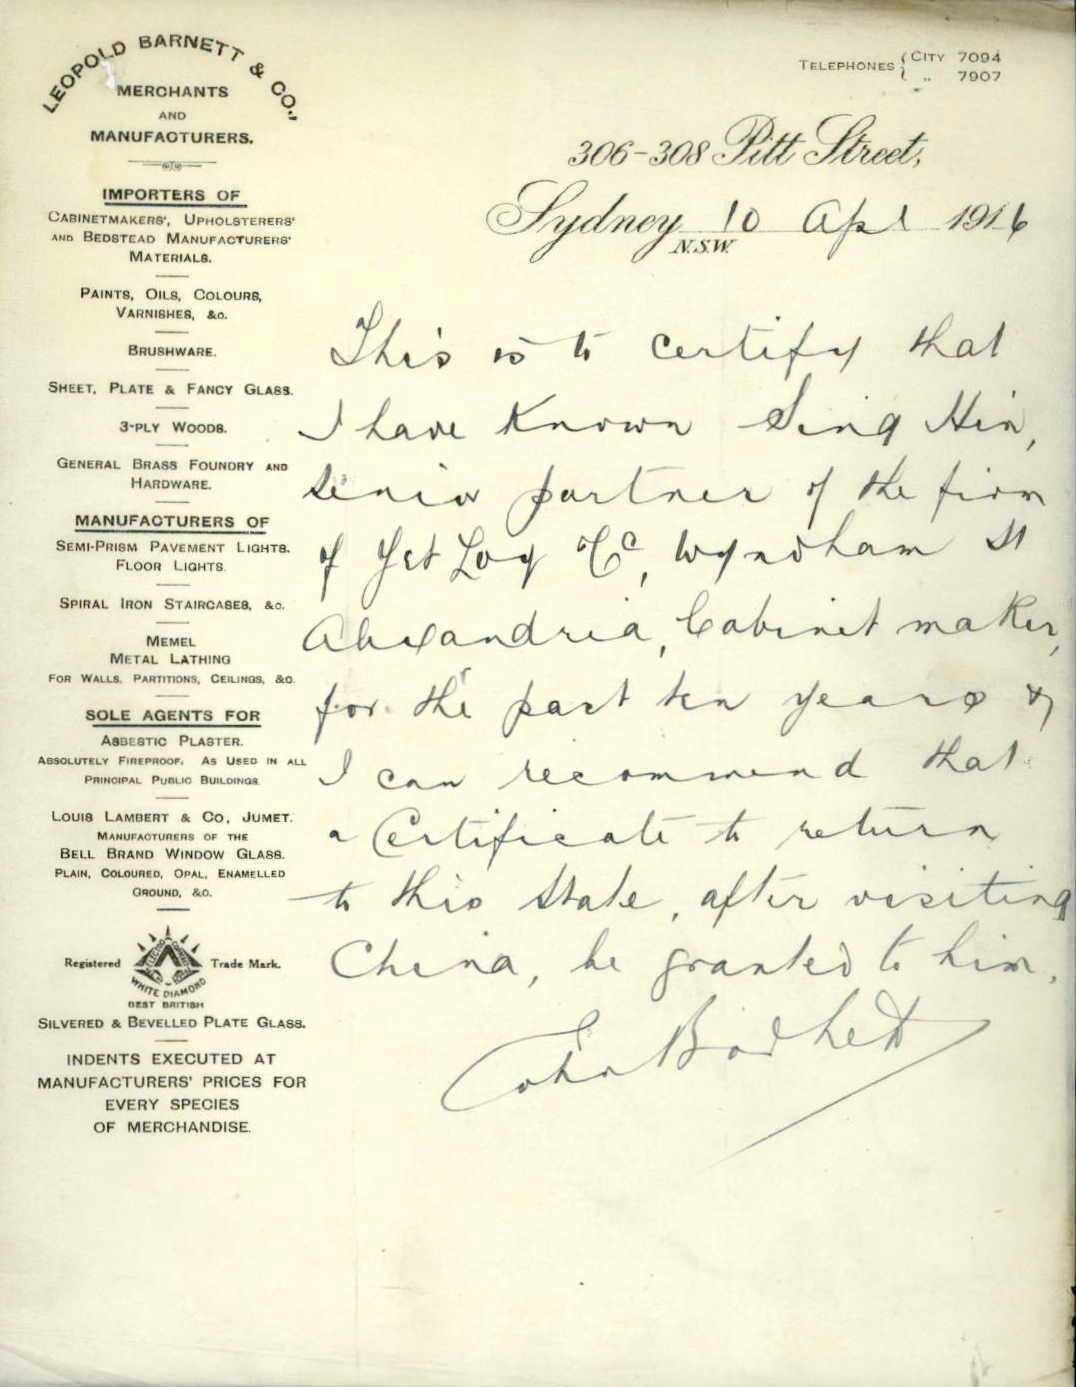 LEOPOLD BARNETT & CO.,
MERCHANTS
AND
MANUFACTURERS.
IMPORTERS OF
CABINETMAKERS', UPHOLSTERERS'
AND BEDSTEAD MANUFACTURERS'
MATERIALS.
PAINTS, OILS, COLOURS,
VARNISHES, &c.
BRUSHWARE.
SHEET, PLATE & FANCY GLASS.
3-PLY WOODS.
GENERAL BRASS FOUNDRY AND
HARDWARE.
MANUFACTURERS OF
SEMI-PRISM PAVEMENT LIGHTS.
FLOOR LIGHTS.
SPIRAL IRON STAIRCASES, &c.
MEMEL
METAL LATHING
FOR WALLS, PARTITIONS, CEILINGS, &c.
SOLE AGENTS FOR
ASBESTIC PLASTER.
ABSOLUTELY FIREPROOF. AS USED IN ALL
PRINCIPAL PUBLIC BUILDINGS.
LOUIS LAMBERT & CO, JUMET.
MANUFACTURERS OF THE
BELL BRAND WINDOW GLASS.
PLAIN, COLOURED, OPAL, ENAMELLED
GROUND, &c.
Registered Trade Mark.
WHITE DIAMOND
BEST BRITISH
SILVERED & BEVELLED PLATE GLASS.
INDENTS EXECUTED AT
MANUFACTURERS' PRICES FOR
EVERY SPECIES
OF MERCHANDISE.
TELEPHONES { CITY 7094
" 7907
306-308 Pitt Street,
Sydney 10 Apl 1916
N.S.W.
This is to certify that
I have known Sing Hin,
senior partner of the firm
of Yet Loy & Co, Wyndham St
Alexandria, Cabinet maker,
for the past ten years &
I can recommend that
a Certificate to return
to this State, after visiting
China, be granted to him.